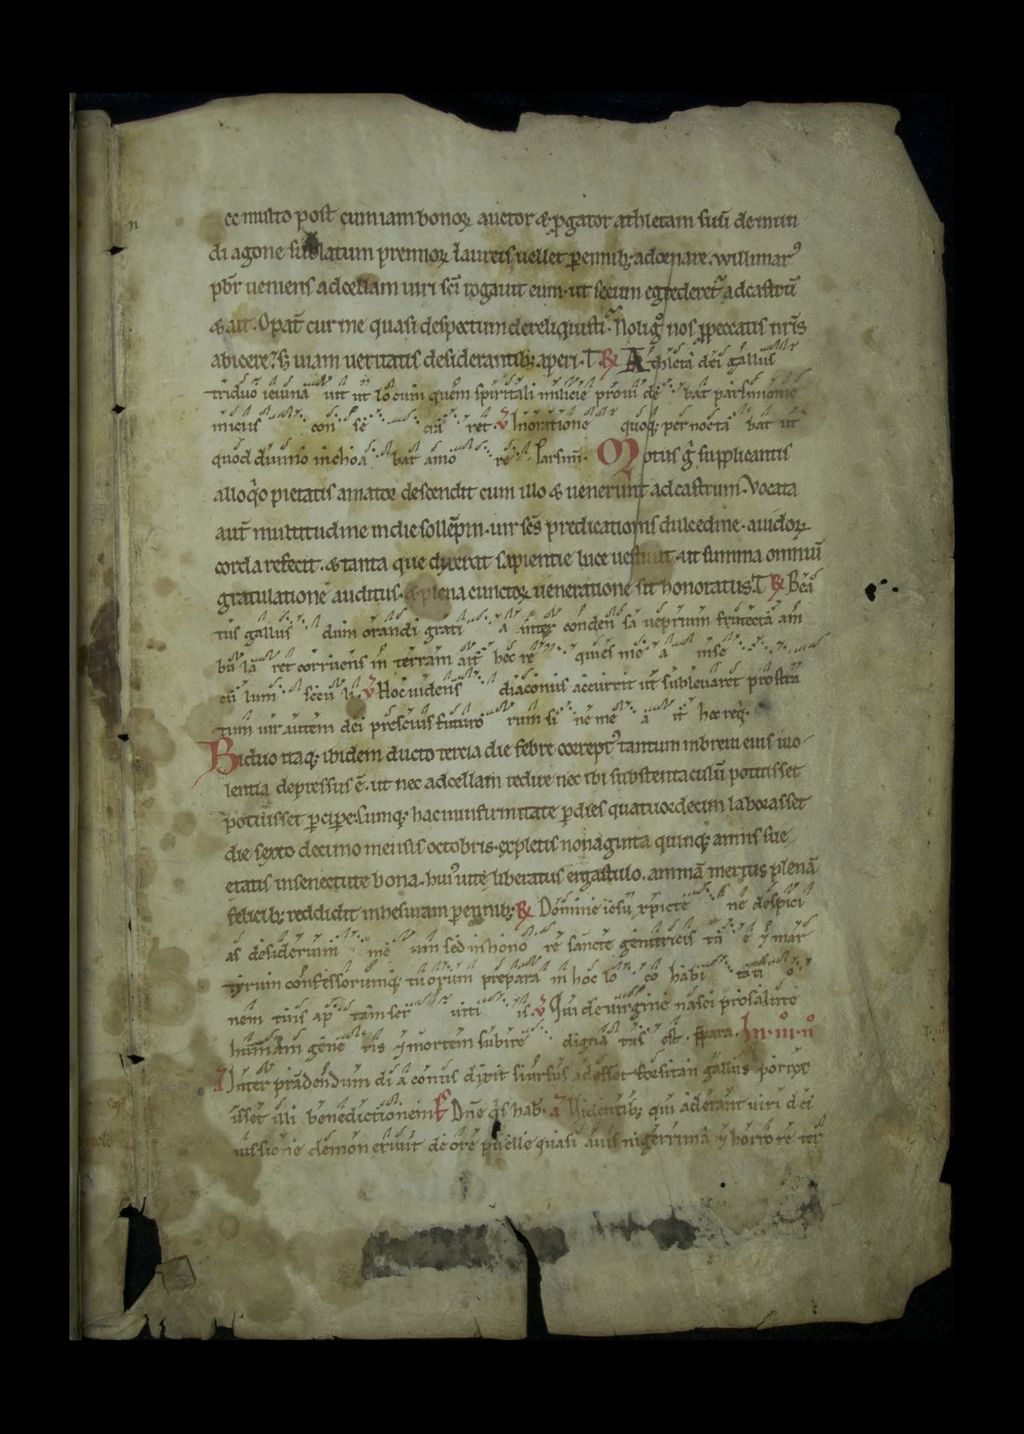 ec multo post cum iam bonoꝝ auctor & ꝓgator athletam suū de mun
di agone sublatum premioꝝ laureis uellet ꝑennib; adornare. willimarꝰ
pb̄r ueniens ad cellam uiri sc̄i rogauit eum. ut secum egrederet̄ ad castrū
& ait. O pat̄ cur me quasi despectum dereliquisti. Noli g̊ nos ꝓ peccatis nr̄is
abicere? s; uiam ueritatis desiderantib; aperi. T ℟ Athleta dei gallus
triduo ieiuna uit ut locum quem spiritali milicie prouide bat parsimonie
inicus con se cra ret. ℣ In oratione quoq; pernocta bat ut
quod diuino inchoa bat amo re Parsim. Motus g̊ supplicantis
alloq̊o pietatis amator descendit cum illo & uenerunt ad castrum. Vocata
aut̄ multitudine in die sollēpni. uir sc̄s predicationis dulcedine. auidoꝝ
corda refecit. & tanta que dixerat sapientie luce uestiuit. ut summa omniū
gratulatione auditus. & plena cunctoꝝ ueneratione sit honoratus. T ℟ Bea
tus gallus dum orandi grati a inter conden sa ueprium frutecta am
bu la ret corruens in terram ait hec re quies me a in se
cu lum secu li ℣ Hoc uidens diaconus accurrit ut subleuaret prostra
tum uir autem dei prescius futuro rum si ne me a it hec req̄.
Biduo itaq; ibidem ducto tercia die febre correptꝰ tantum in breui eius uio
lentia depressus ē. ut nec ad cellam redire nec ibi substentaculū potuisset
potuisset ꝑcipe. Cumq; hac in infirmitate ꝑ dies quatuordecim laborasset
die sexto decimo mensis octobris. expletis nonaginta quinq; annis sue
etatis in senectute bona. huiꝰ uite liberatus ergastulo. animā meritis plenā
felicib; reddidit in hesuram ꝑennib; ℟ Domine iesu xp̄icte ne despici
as desiderium me um sed in hono re sancte genitricis tu e & mar
tyrum confessorumq; tuorum prepara in hoc lo co habi tati o
nem tuis ap tam ser uiti is ℣ Qui de uirgine nasci pro salute
humani gene ris & mortem subire digna tus est. Prepara. In .iii. n̊
A Inter prandendum diaconus dixit si ursus adesset forsitan gallus porrex
isset illi benedictionem. Ps Dn̄e q̄s hab. a Uidentib; qui aderant uiri dei
iussione demon exiuit de ore puelle quasi auis nigerrima & horrore ter